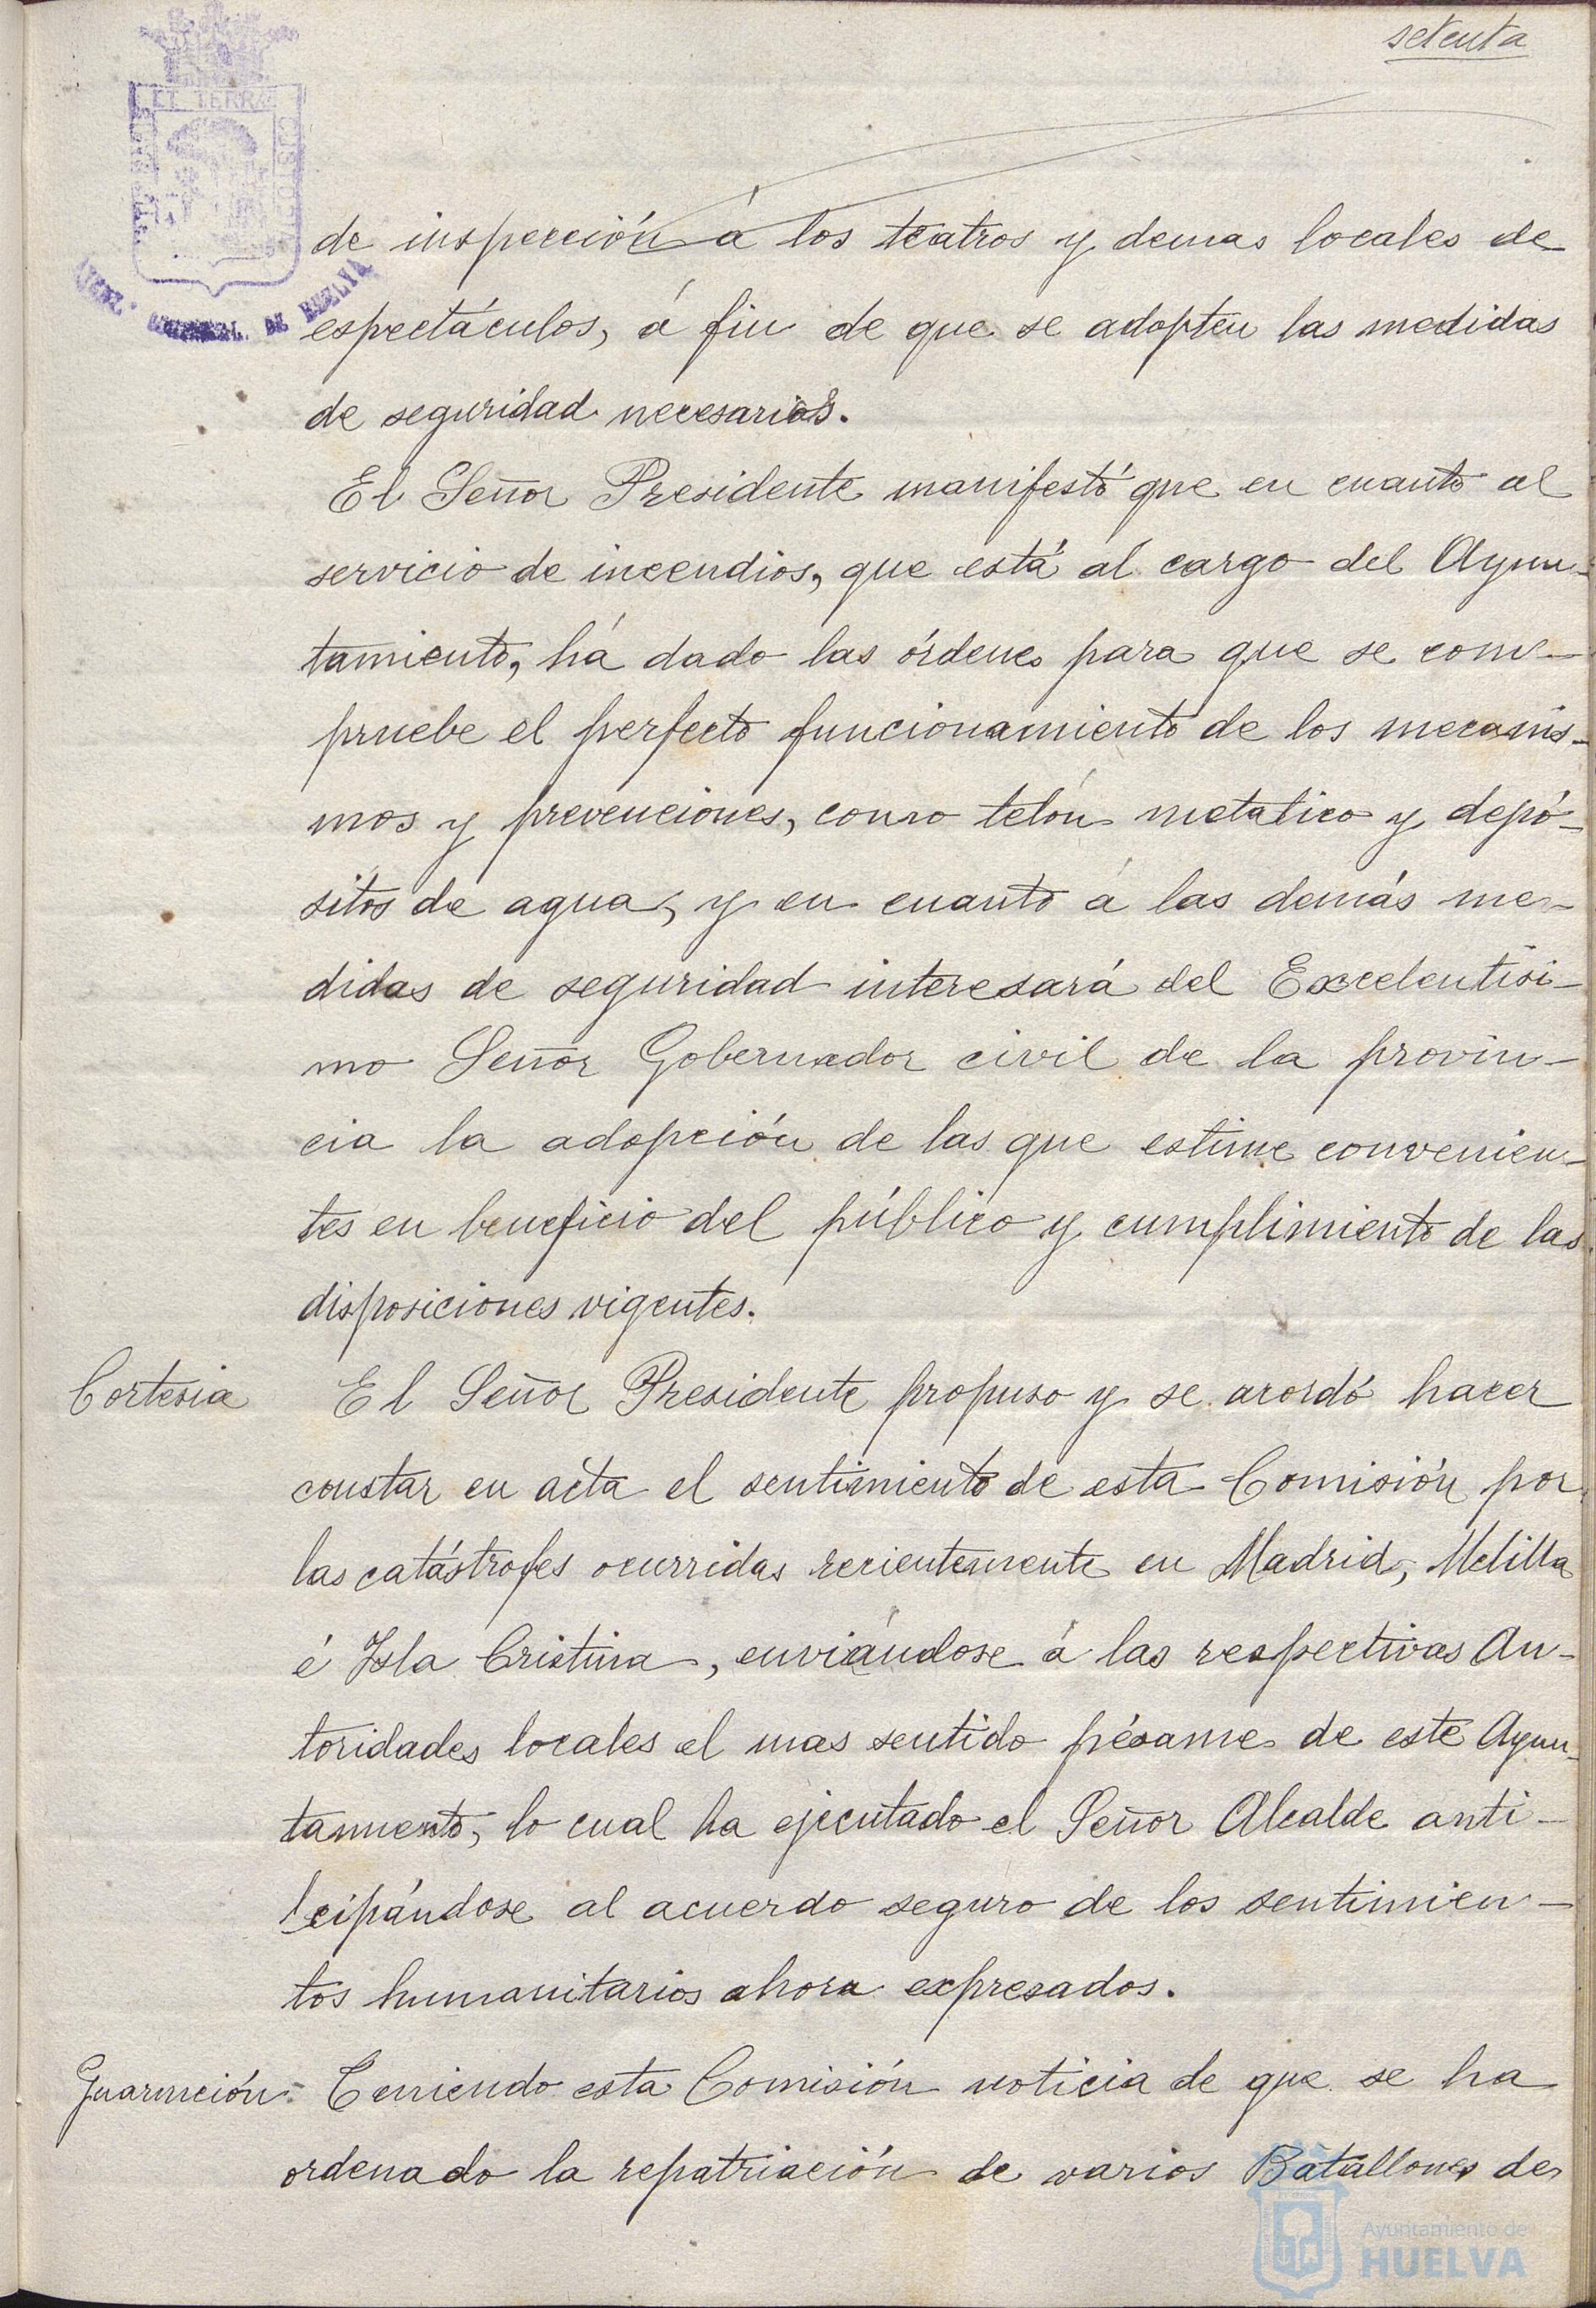 setenta
ET TERRÆ
de inspección á los teatros y demas locales de
espectáculos, á fin de que se adopten las medidas
de seguridad necesarias.
El Señor Presidente manifestó que en cuanto al
servicio de incendios, que está al cargo del Ayun-
tamiento, há dado las órdenes para que se com-
pruebe el perfecto funcionamiento de los mecanis-
mos y prevenciones, como telón metalico y depó-
sitos de agua, y en cuanto á las demás me-
didas de seguridad interesará del Excelentisi-
mo Señor Gobernador civil de la provin-
cia la adopción de las que estime convenien-
tes en beneficio del público y cumplimiento de las
disposiciones vigentes.
Cortesia El Señor Presidente propuso y se acordó hacer
constar en acta el sentimiento de esta Comisión por
las catástrofes ocurridas recientemente en Madrid, Melilla
é Isla Cristina, enviándose á las respectivas Au-
toridades locales el mas sentido pésame de este Ayun-
tamiento, lo cual ha ejecutado el Señor Alcalde anti-
cipándose al acuerdo seguro de los sentimien-
tos humanitarios ahora expresados.
Guarnición- Teniendo esta Comisión noticia de que se ha
ordenado la repatriación de varios Batallones de
Ayuntamiento de
HUELVA